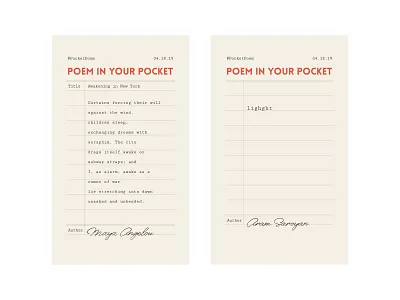 #PocketPoem 04.18.19
POEM IN YOUR POCKET
Title Awakening in New York
Curtains forcing their will
against the wind,
children sleep,
exchanging dreams with
seraphim. The city
drags itself awake on
subway straps; and
I, an alarm, awake as a
rumor of war
lie stretching into dawn
unasked and unheeded.
Author Maya Angelou
#PocketPoem 04.18.19
POEM IN YOUR POCKET
lighght
Author Aram Saroyan